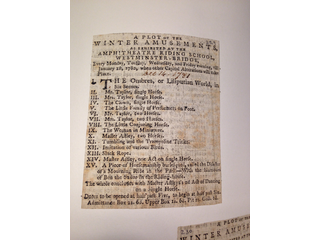 A PLOT OF THE
WINTER AMUSEMENTS,
AS EXHIBITED AT THE
AMPHITHEATRE RIDING SCHOOL,
WESTMINSTER-BRIDGE,
Every Monday, Tuesday, Wednesday, and Friday evening,
January 28, 1782, when other Capital Alterations will take
Place.
I. THE Ombres, or Lilliputian World, in
Six Scenes.
II. Mr. Taylor, Single Horse.
III. Mrs. Taylor, Single Horse.
IV. The Clown, Single Horse.
V. The Little Family of Performers on Foot.
VI. Mr. Taylor, two Horses.
VII. Mrs. Taylor, two Horses.
VIII. The Little Conjuring Horse.
IX. The Women in Miniature.
X. Master Astley, two Horses.
XI. Tumbling and the Trampoline Tricks.
XII. Imitations of various Birds.
XIII. Slack Rope.
XIV. Master Astley, one Act on Single Horse.
XV. A Piece of Horsemanship burlesqued, called the
of a Mounting Ride in the Park—With the Humours
of Ben the Brave in the Riding-house.
The whole concludes with Master Astley's Act of Dancing
on a Single Horse.
Doors to be opened at half past Five, to begin at half past Six.
Admittance Box 2s. 6d. Upper Box 2s. Pit
A PLOT OF
WINTER AM